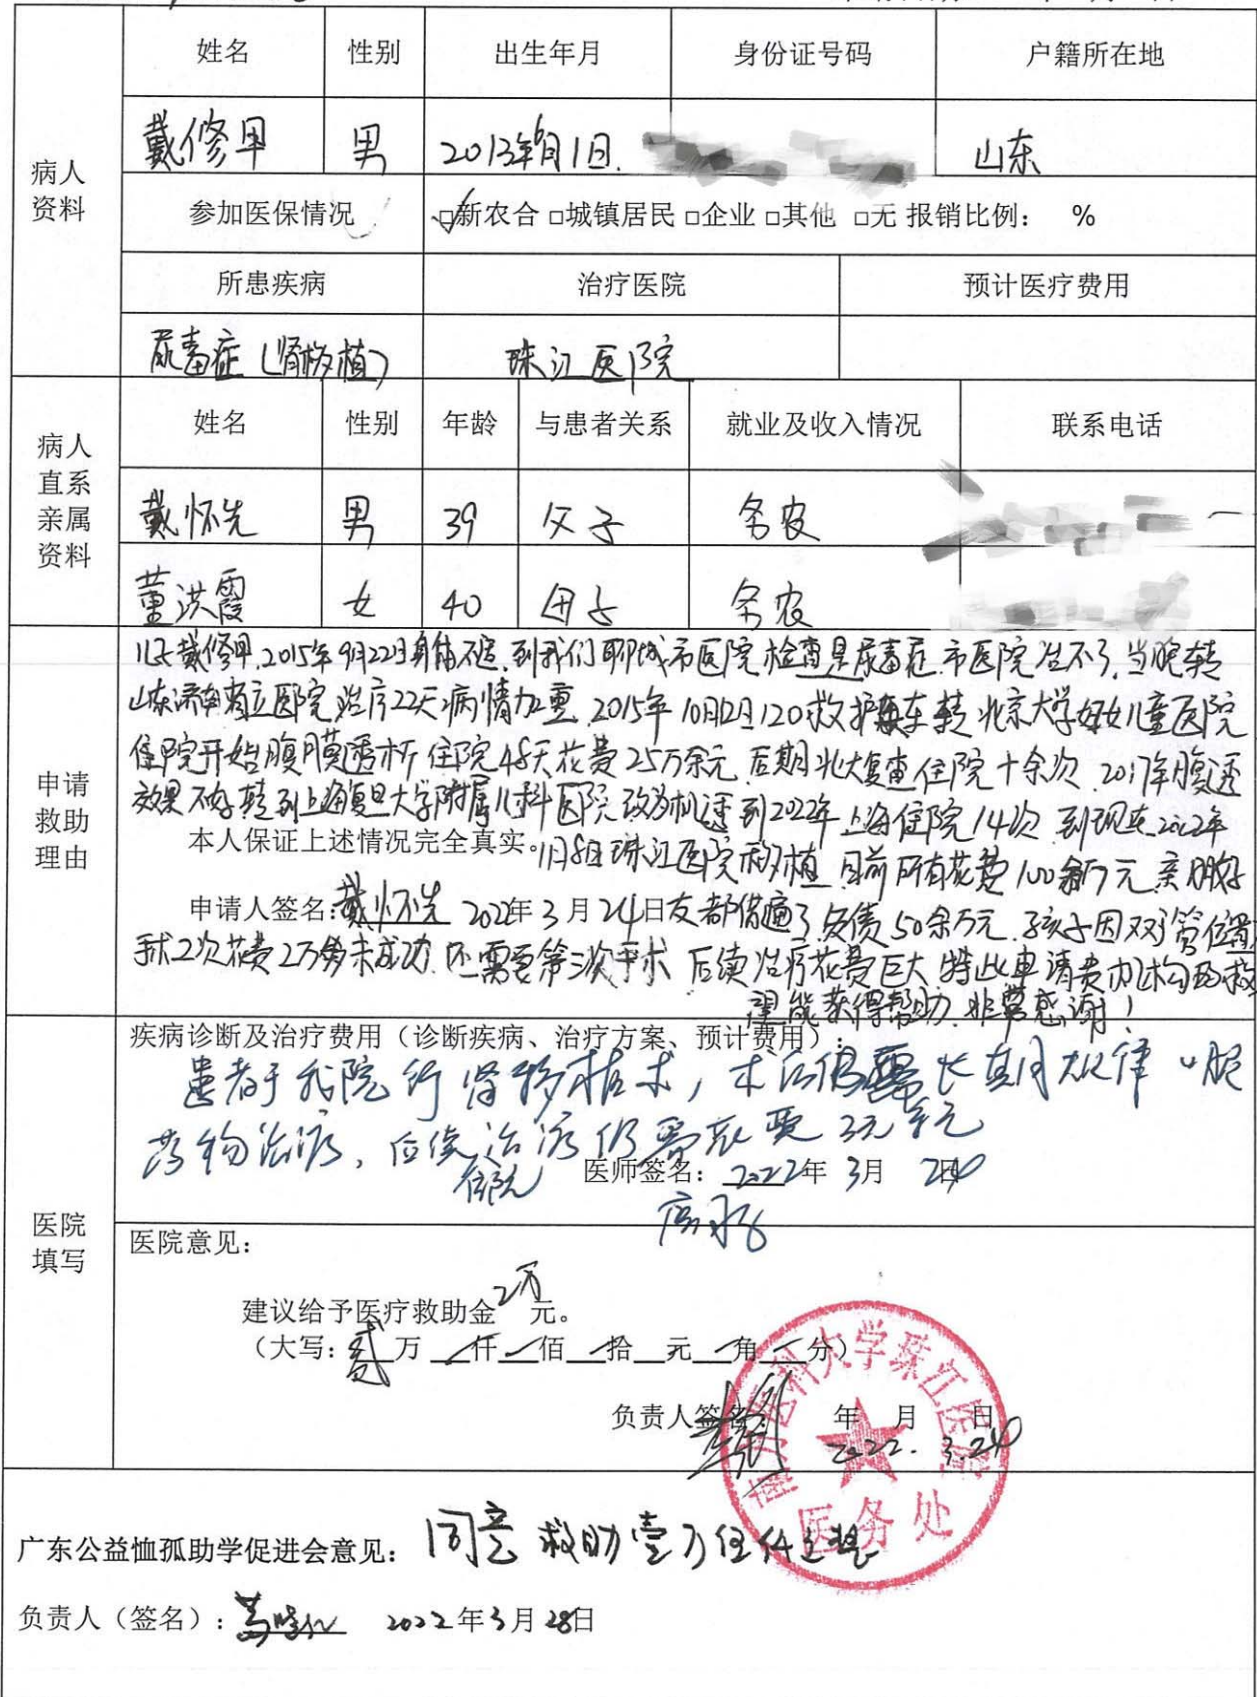 姓名 性别 出生年月 身份证号码 户籍所在地
病人资料
戴修甲 男 2013年6月1日. 山东
参加医保情况 ☑新农合 □城镇居民 □企业 □其他 □无 报销比例： %
所患疾病 治疗医院 预计医疗费用
尿毒症（肾移植） 珠江医院
病人直系亲属资料
姓名 性别 年龄 与患者关系 就业及收入情况 联系电话
戴怀先 男 39 父子 务农
董洪霞 女 40 母子 务农
申请救助理由
儿子戴修甲,2015年9月22日身体不适,到我们聊城市医院检查是尿毒症.市医院治不了,当晚转
山东济南省立医院治疗22天病情加重 2015年10月12日120救护车转北京大学妇女儿童医院
住院开始腹膜透析 住院48天花费25万余元 后期北大复查住院十余次.2017年腹透
效果不好转到上海复旦大学附属儿科医院改为机透到2022年上海住院14次 到现在2022年
本人保证上述情况完全真实。1月8日珠江医院移植 目前所有花费100余万元 亲朋好
申请人签名:戴怀先 2022年3月24日友都借遍了负债50余万元.孩子因双J管位置
手术2次花费2万多未成功.还需要第三次手术 后续治疗花费巨大 特此申请贵机构救
望能获得帮助.非常感谢！
医院填写
疾病诊断及治疗费用（诊断疾病、治疗方案、预计费用）：
患者于我院行肾移植术，术后仍需长期规律口服
药物治疗，后续治疗仍需花费
住院
医师签名：2022年3月24日
医院意见：
建议给予医疗救助金2万元。
（大写：贰万 仟 佰 拾 元 角 分）
负责人签名： 年 月 日
2022.3.24
南方医科大学珠江医院
医务处
广东公益恤孤助学促进会意见：同意救助壹万伍仟元整
负责人（签名）： 2022年3月28日